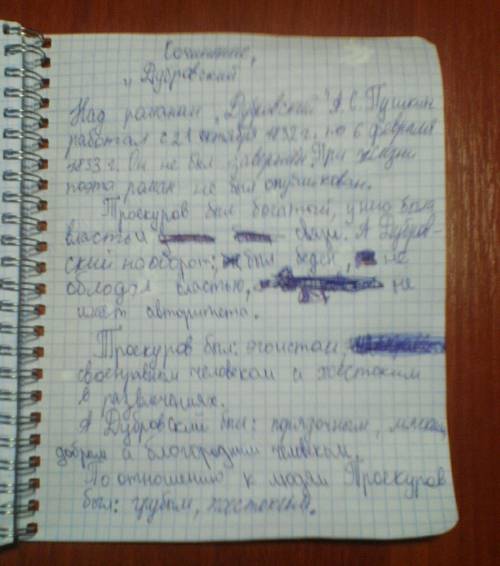 Сочинение,
"Дубровский"
Над романам "Дубровский" А.С. Пушкин
работал с 21 октября 1832 г. по 6 февраля
1833 г. Он не был завершён. При жизни
поэта роман не был опубликован.
Троекуров был богатый, у него была
власть и А Дубров-
ский наоборот: был беден, не
облодал властью, не
имел авторитета.
Троекуров был: эгоистом,
своенравным человеком и жестоким
в развлечениях.
А Дубровский был: порядочным,
добрым и благородным человеком.
По отношению к людям Троекуров
был: грубым, жестоким.